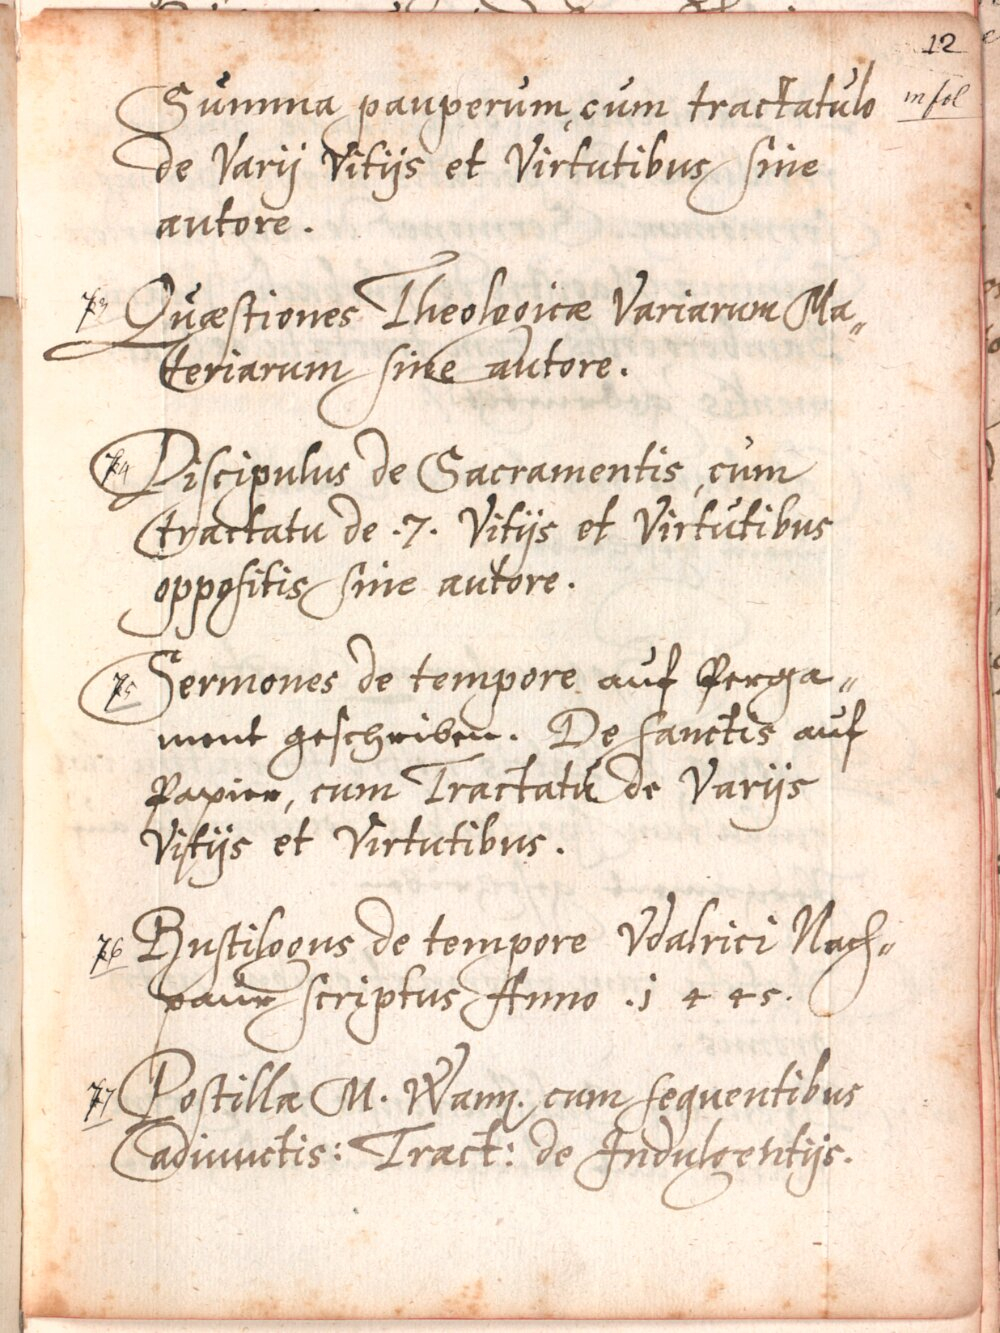 12
in fol
Summa pauperum, cum tractatulo
de Varij Vitijs et Virtutibus sine
autore.
73 Quæstiones Theologicæ Variarum Ma„
teriarum sine autore.
74 Discipulus de Sacramentis, cum
tractatu de .7. Vitijs et Virtutibus
oppositis sine autore.
75 Sermones de tempore auf Perga„
ment geschriben. De sanctis auf
Papier, cum Tractatu de Varijs
Vitijs et Virtutibus.
76 Bustilogus de tempore Vdalrici Nach„
paur scriptus Anno .1445.
77 Postilla M. Wann. cum sequentibus
adiunctis: Tract: de Indulgentijs.